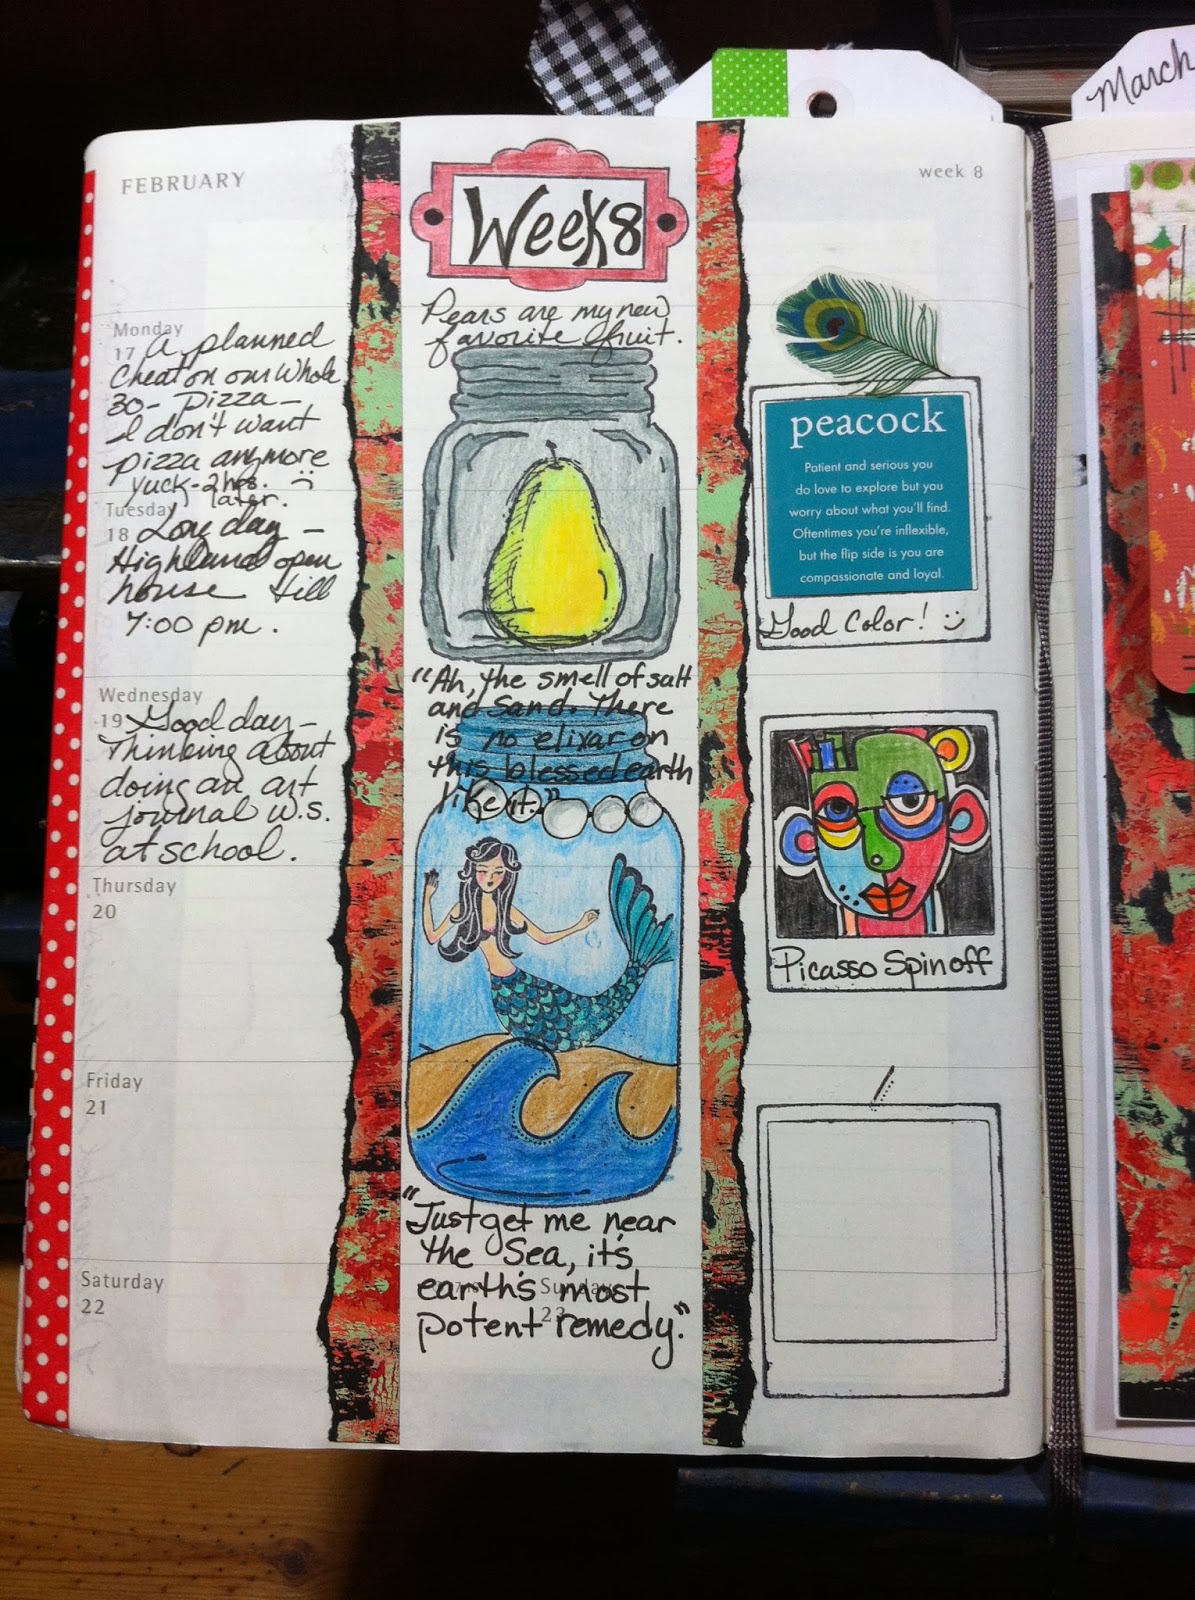 March
FEBRUARY
week 8
Week 8
Monday
17 A planned
Cheat on our Whole
30- Pizza -
I don't want
pizza anymore
yuck-2hrs.
later.
Tuesday
18 Long day -
Highland open
house till
7:00 pm.
Wednesday
19 Good day -
Thinking about
doing an art
journal w.s.
at school.
Thursday
20
Friday
21
Saturday
22
Pears are my new
favorite fruit.
"Ah, the smell of salt
and sand. There
is no elixar on
this blessed earth
like it."
"Just get me near
the Sea, it's
earth's most
potent remedy."
Sunday
23
peacock
Patient and serious you
do love to explore but you
worry about what you'll find.
Oftentimes you're inflexible,
but the flip side is you are
compassionate and loyal.
Good Color! :)
Picasso Spin off